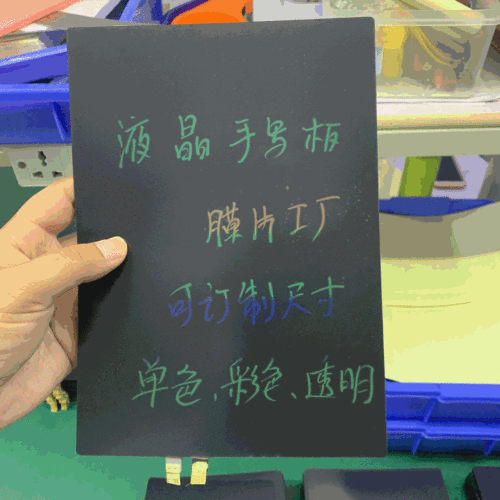 液晶手写板
膜片工厂
可订制尺寸
单色、彩色、透明